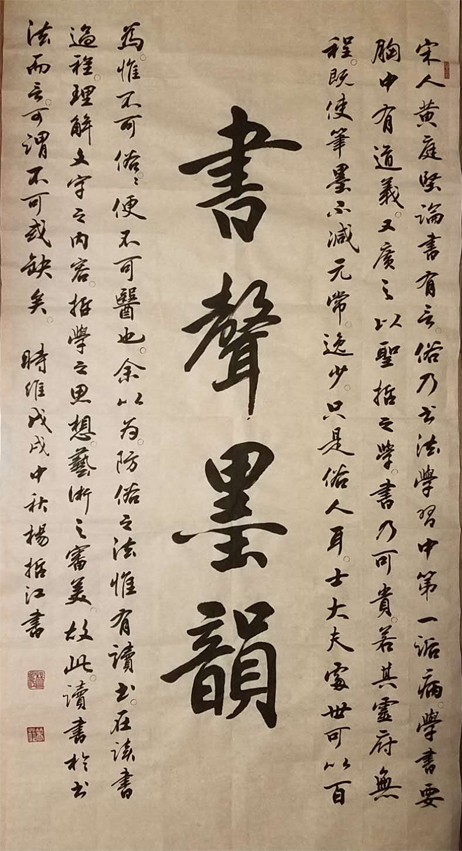 宋人黄庭堅論書有言。俗乃书法學習中第一诟病。學書要
胸中有道義。又廣之以聖哲之學。書乃可貴。若其靈府無
程。既使筆墨不減元常逸少。只是俗人耳。士大夫處世可以百
書聲墨韻
為。惟不可俗。〻便不可醫也。余以为防俗之法惟有讀书。在读書
過程。理解文字之内容。哲學之思想。藝術之審美。故此。讀書於书
法而言。可謂不可或缺矣。時維戊戌中秋楊哲江書